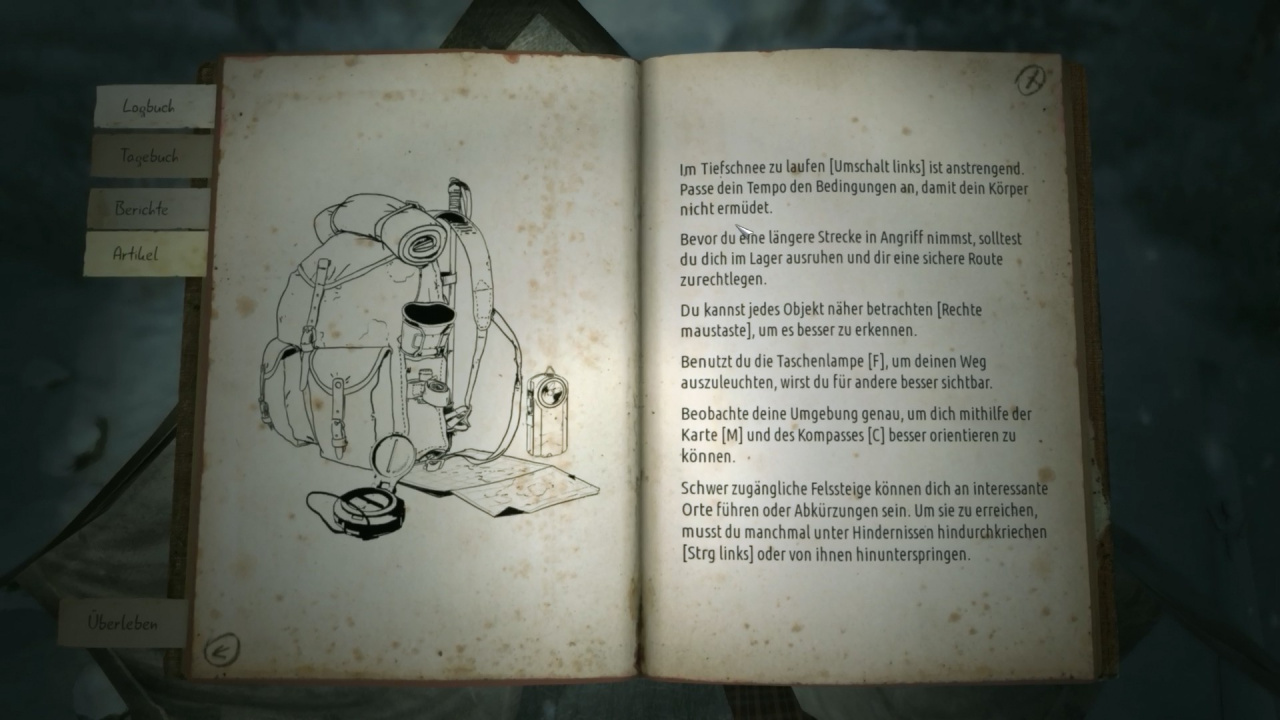 Logbuch
Tagebuch
Berichte
Artikel
Überleben
Im Tiefschnee zu laufen [Umschalt links] ist anstrengend.
Passe dein Tempo den Bedingungen an, damit dein Körper
nicht ermüdet.
Bevor du eine längere Strecke in Angriff nimmst, solltest
du dich im Lager ausruhen und dir eine sichere Route
zurechtlegen.
Du kannst jedes Objekt näher betrachten [Rechte
maustaste], um es besser zu erkennen.
Benutzt du die Taschenlampe [F], um deinen Weg
auszuleuchten, wirst du für andere besser sichtbar.
Beobachte deine Umgebung genau, um dich mithilfe der
Karte [M] und des Kompasses [C] besser orientieren zu
können.
Schwer zugängliche Felssteige können dich an interessante
Orte führen oder Abkürzungen sein. Um sie zu erreichen,
musst du manchmal unter Hindernissen hindurchkriechen
[Strg links] oder von ihnen hinunterspringen.